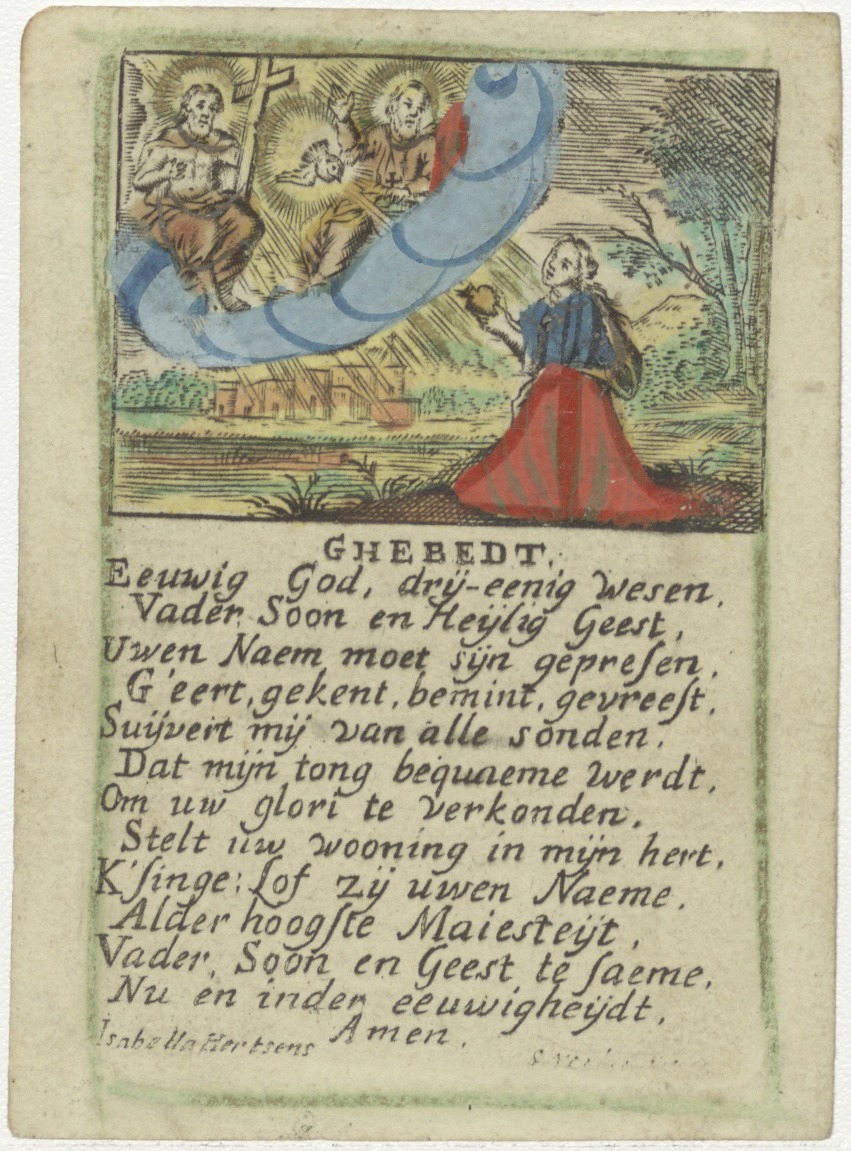 GHEBEDT.
Eeuwig God, drÿ-eenig wesen,
Vader Soon en Heÿlig Geest,
Uwen Naem moet sÿn gepreſen,
G'eert, gekent, bemint, gevreeſt,
Suÿvert mÿ van alle sonden,
Dat mÿn tong bequaeme werdt,
Om uw glori te verkonden,
Stelt uw wooning in mÿn hert,
K'ſinge: Lof zÿ uwen Naeme,
Alder hoogſte Maiesteÿt,
Vader, Soon en Geest te ſaeme,
Nu en inder eeuwigheÿdt,
Amen.
Isabella Hertsens